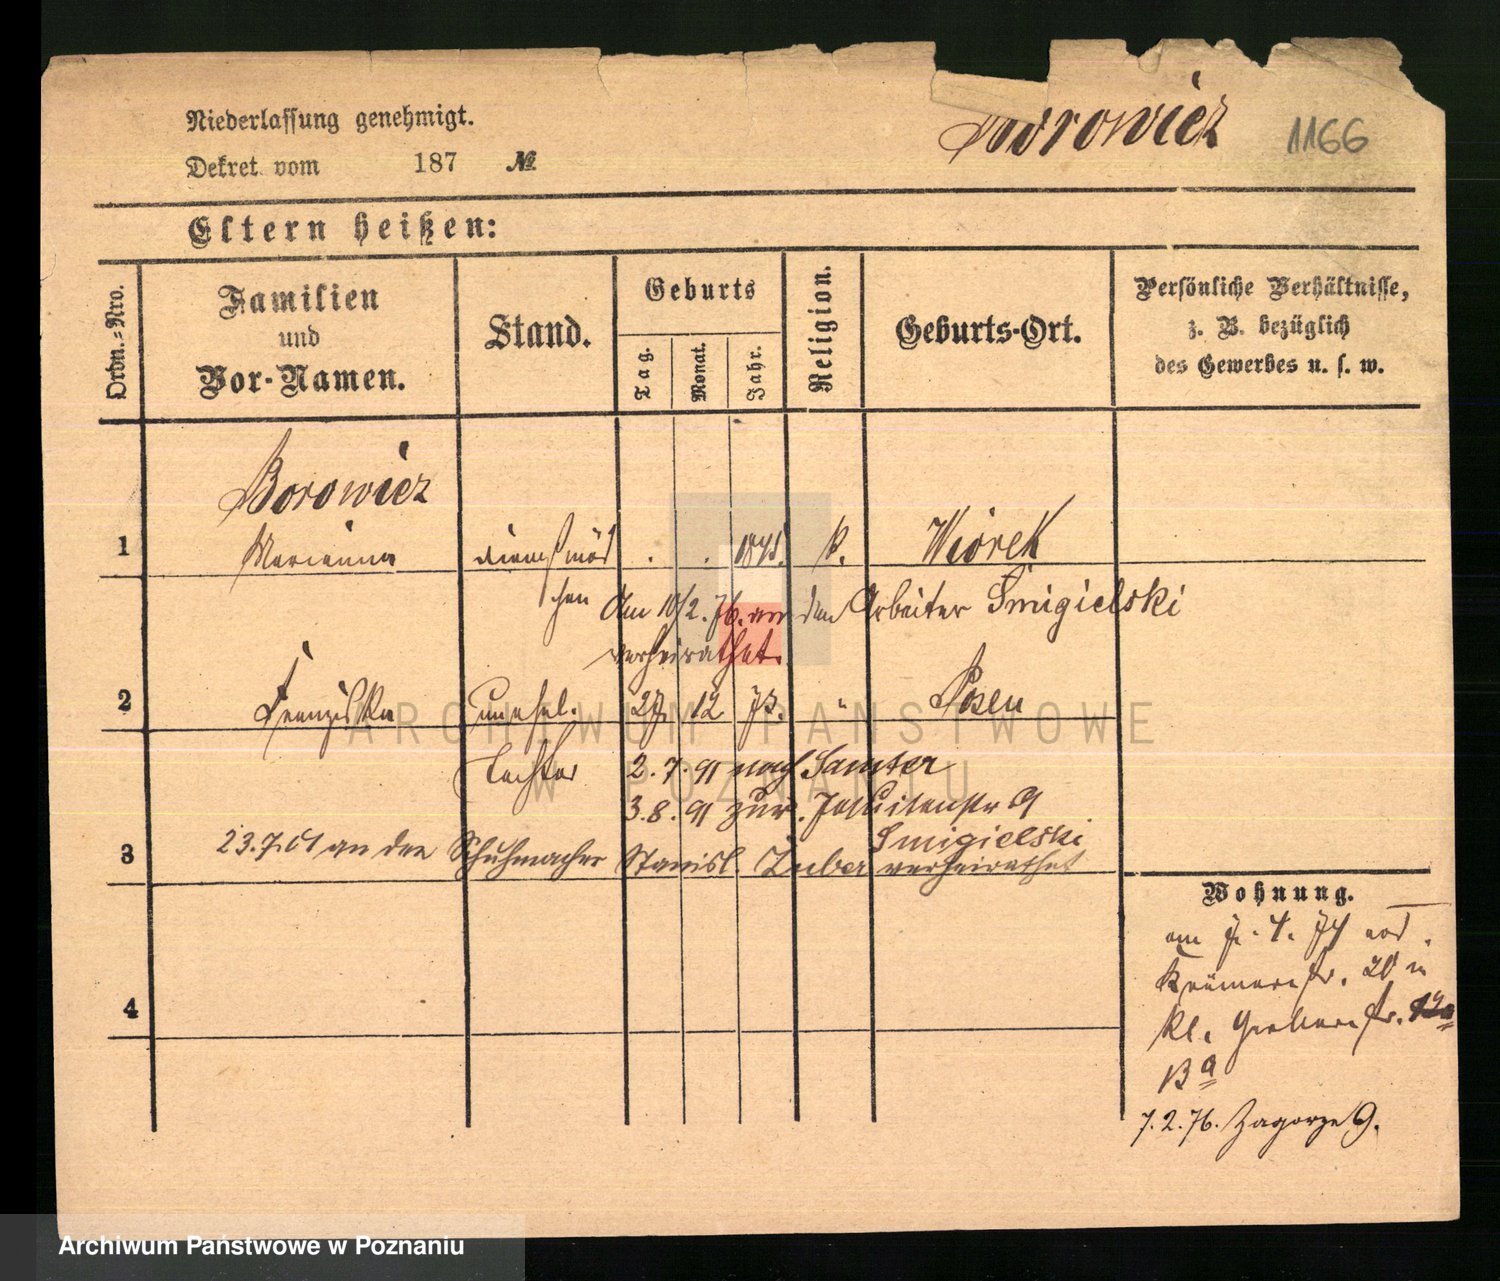 Niederlassung genehmigt.
Dekret vom 187 №
Borowicz 1166
Eltern heißen:
Ordn.-Nro.
Familien und Vor-Namen.
Stand.
Geburts
Tag.
Monat.
Jahr.
Religion.
Geburts-Ort.
Persönliche Verhältnisse,
z. B. bezüglich
des Gewerbes u. s. w.
Borowicz
1 Marianna Dienstmäd . . 1845. k. Wiórek
chen Am 10/2. 76. an den Arbeiter Smigielski
verheirathet.
2 Franziska unehel. 27. 12 73. " Posen
Tochter 2.7.91 nach Samter
3.8.91 zur. Jesuitenstr 9
Smigielski
3 23.7.01 an den Schuhmacher Stanisl. Zuber verheirathet
4
Wohnung.
am 7. 4. 74 von
Krämerstr. 20 in
kl. Gerberstr. 12a
Ba
7.2.76. Zagorze 9.
ARCHIWUM PAŃSTWOWE
W POZNANIU
Archiwum Państwowe w Poznaniu